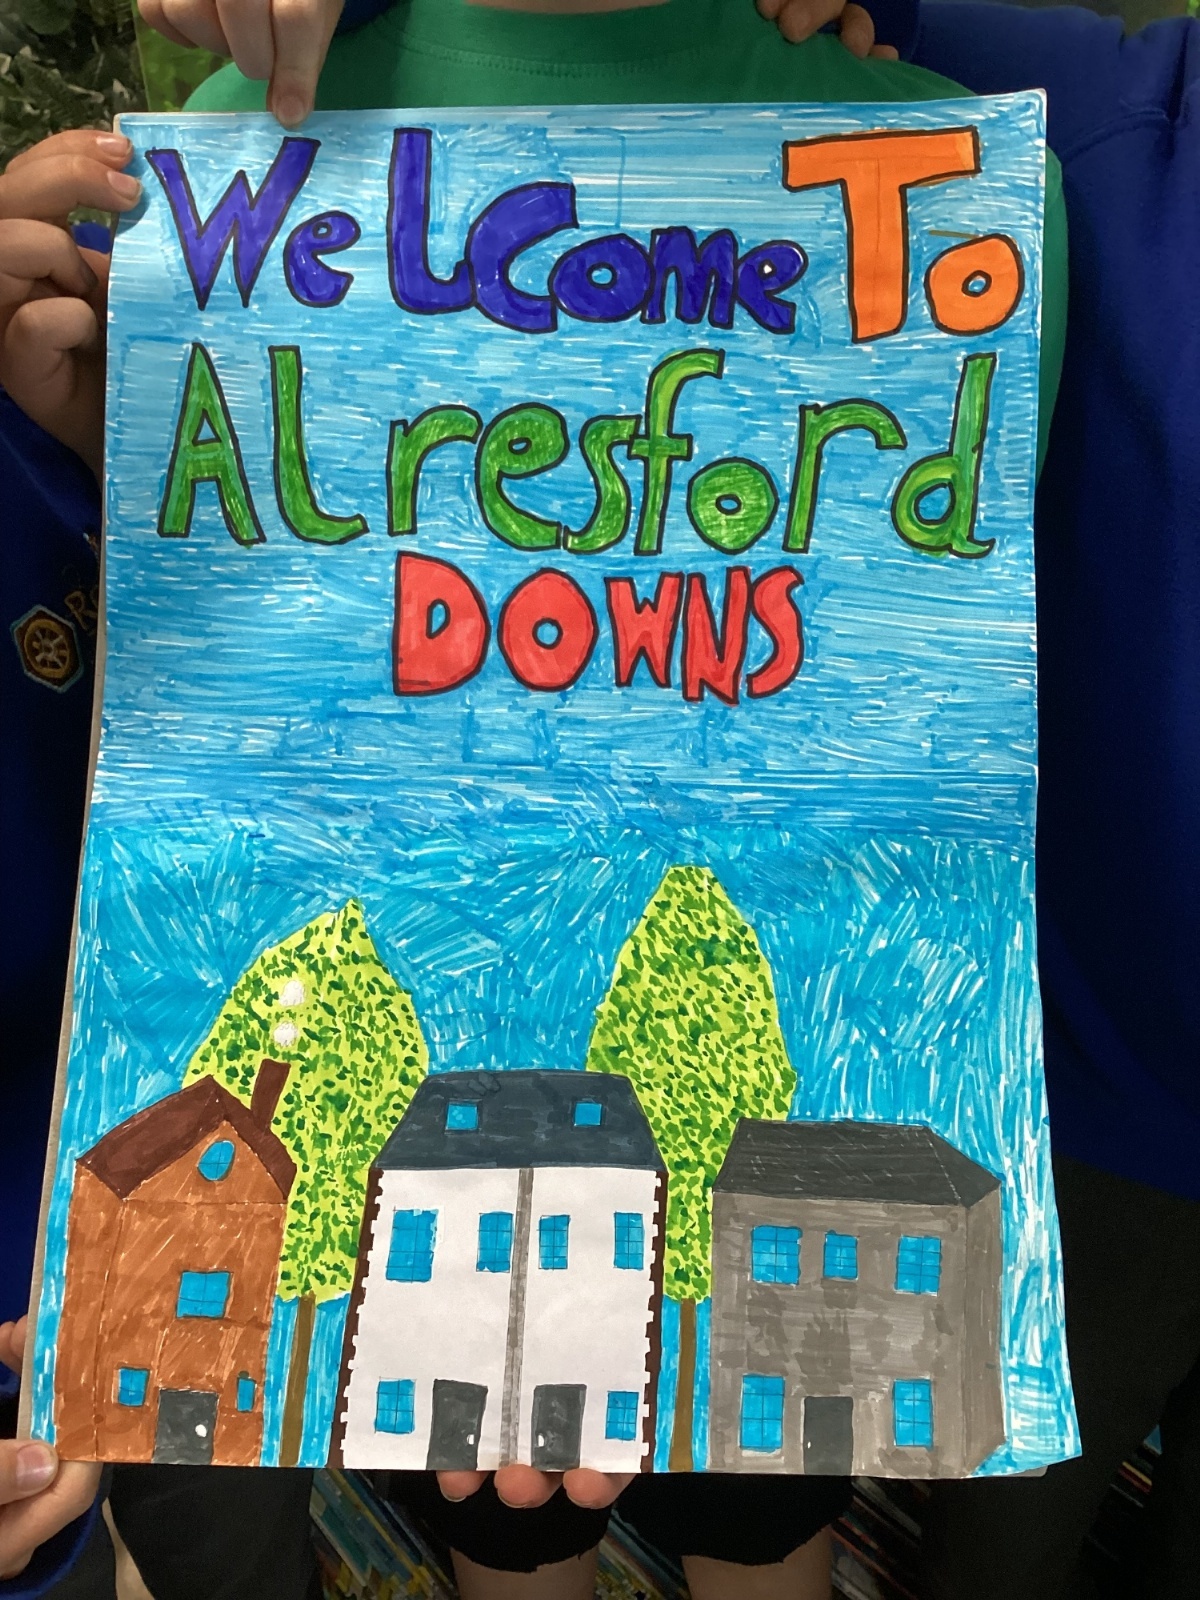 WeLCome To
ALresford
DOWNS